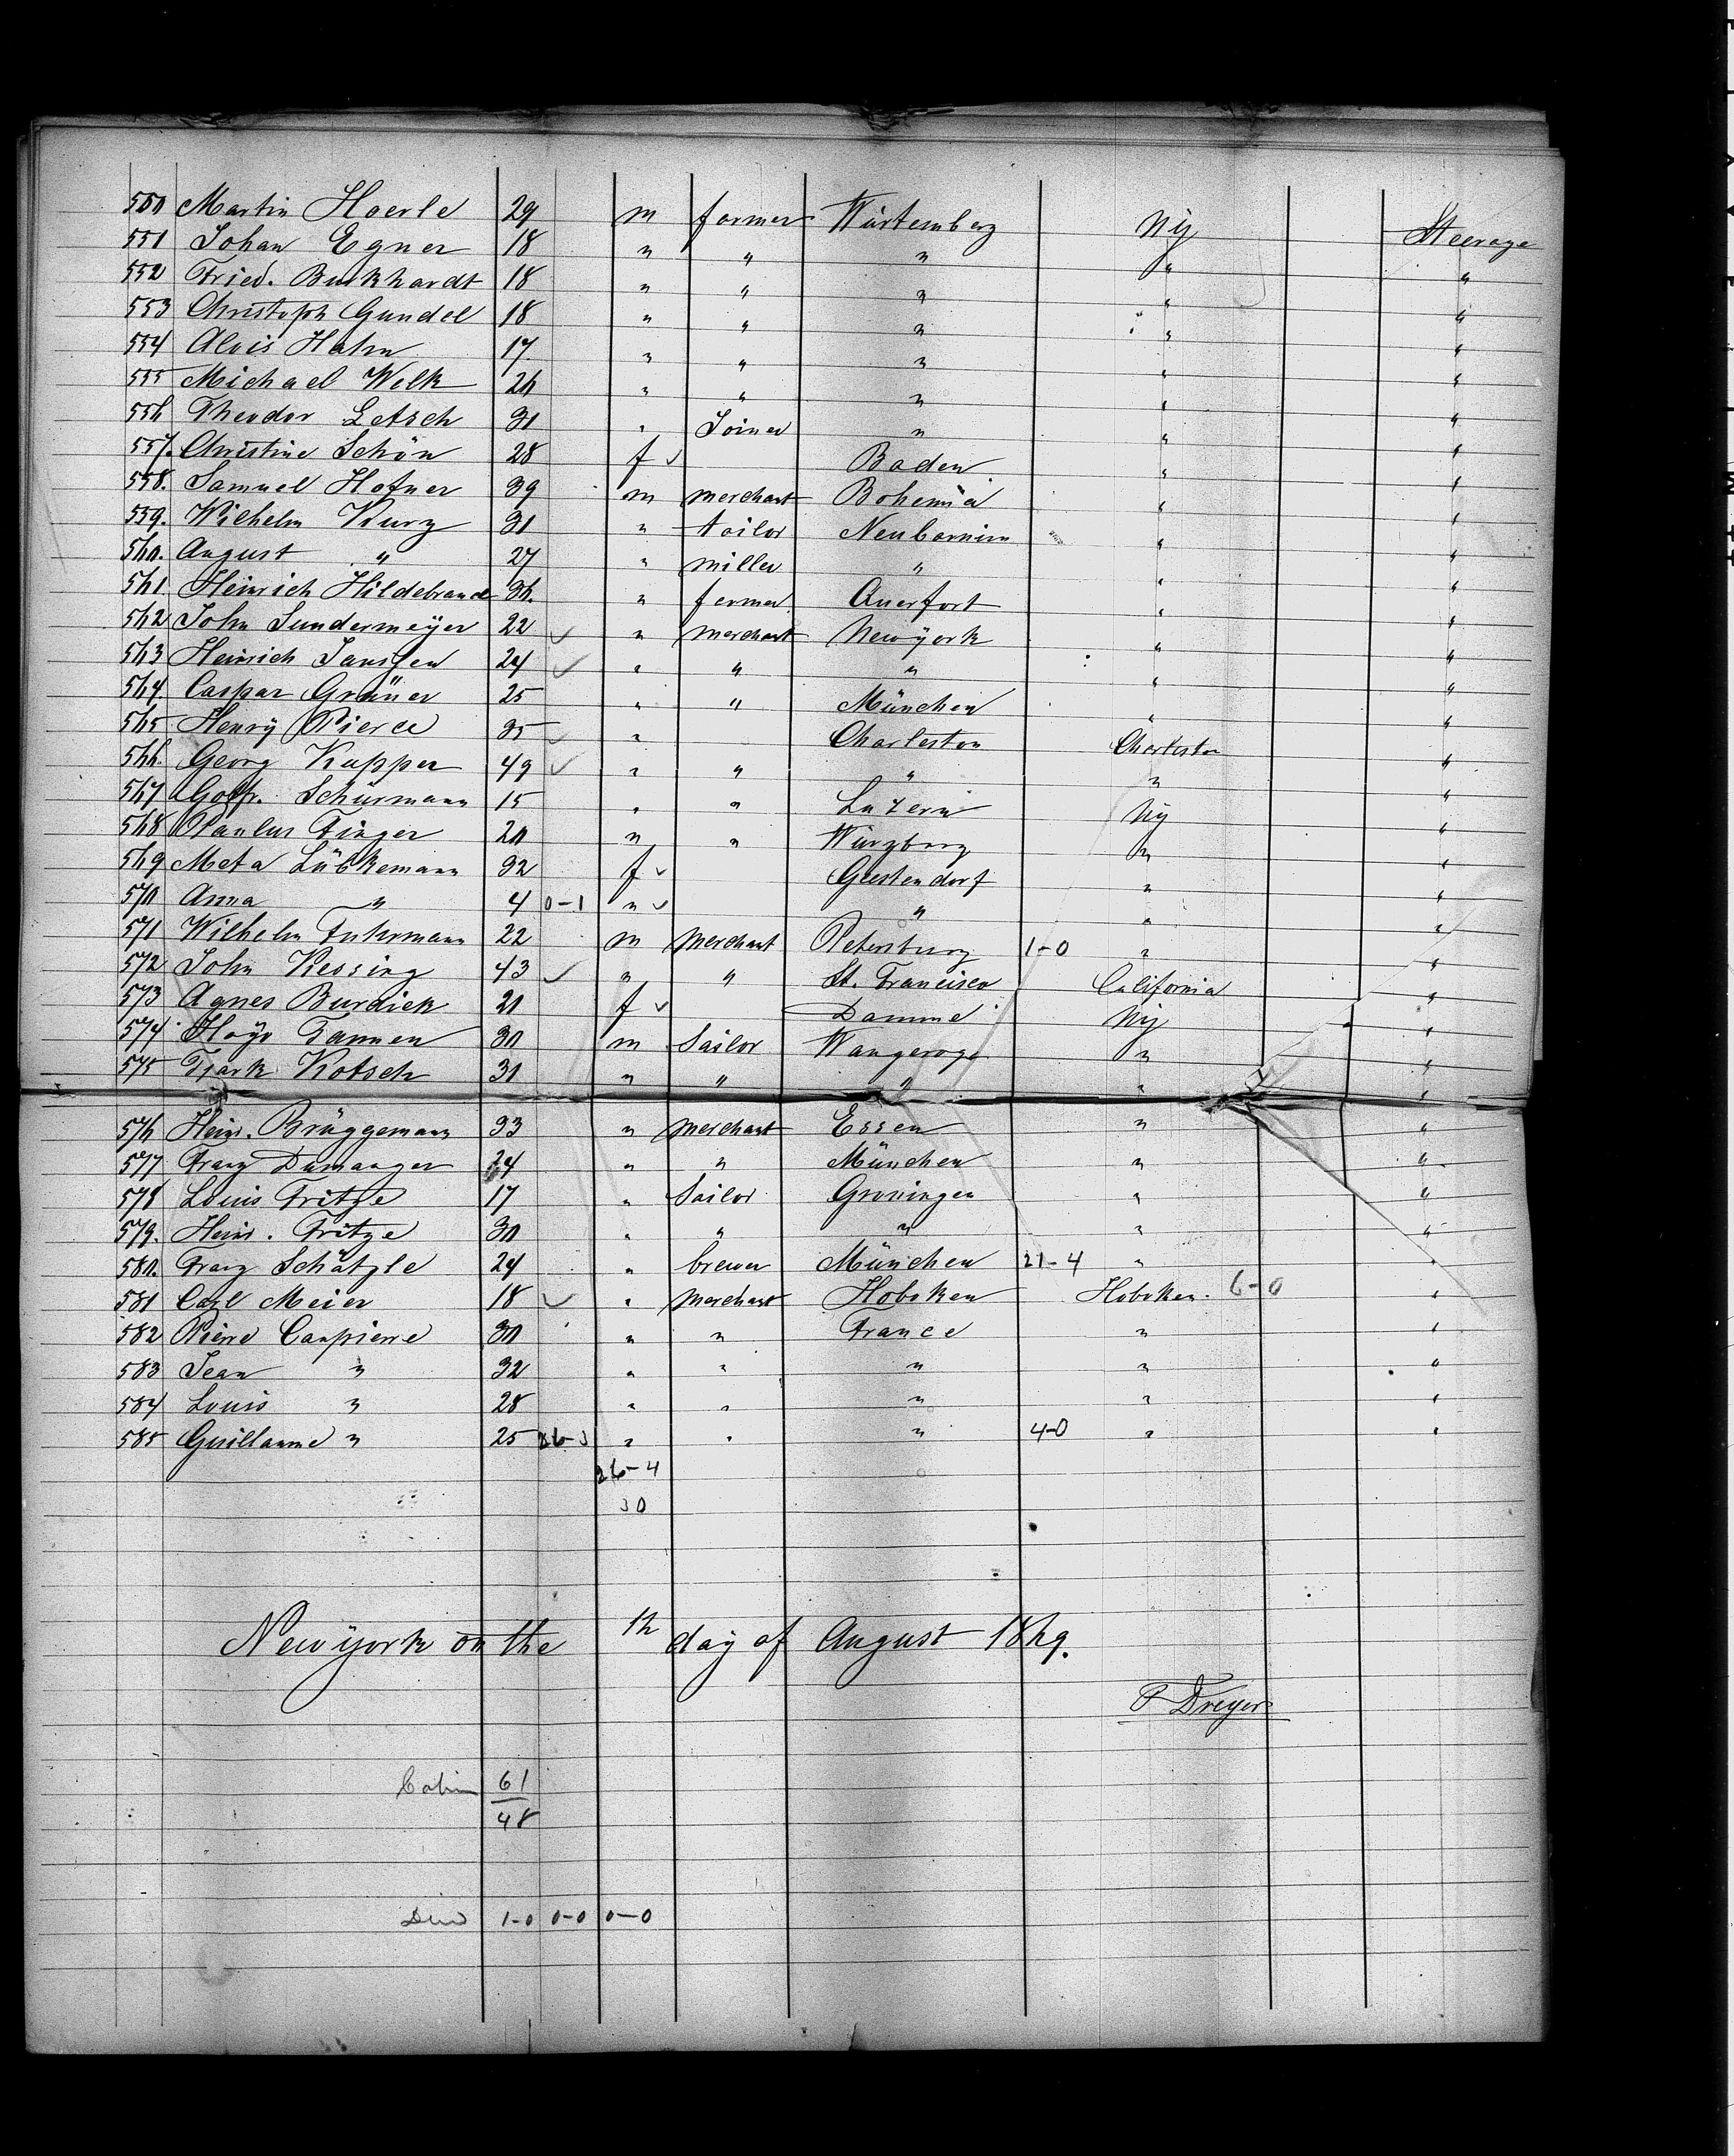 550 Martin Hoerle 29 m farmer Würtemberg Ny Steerage
551 Johan Egner 18 " " " " "
552 Fried. Burkhardt 18 " " " " "
553 Christoph Gundel 18 " " " " "
554 Alois Hahn 17 " " " " "
555 Michael Welk 26 " " " " "
556 Theodor Letsch 30 " Joiner " " "
557. Christine Schön 28 f ✓ Baden " "
558. Samuel Hofner 39 m merchant Bohemia " "
559. Wilhelm Kurz 31 " tailor Neubarnim " "
560. August " 27 " miller " " "
561. Heinrich Hildebrand 36. " farmer Querfort " "
562 John Sundermeyer 22 ✓ " merchant Newyork " "
563 Heinrich Janssen 24 ✓ " " " " "
564. Caspar Grüner 25 " " München " "
565 Henry Pierce 35 ✓ " Charleston Charleston "
566. Georg Kupper 49 ✓ " " " " "
567 Schürmann 15 " " Luzern Ny "
568 Paulus Finger 20 " " Würzburg " "
569 Meta Lübkemann 32 f ✓ Geestendorf " "
570 Anna " 4 0-1 " ✓ " " "
571 Wilhelm Fuhrmann 22 m merchant Petersburg 1-0 " "
572 John Kessing 43 ✓ " " St. Francisco California "
573 Agnes Burdick 21 f ✓ Damme Ny "
574 Hayo Tammen 30 m Sailor Wangeroge " "
575 Tjark Kotsch 31 " " " " "
576 Heinr. Brüggemann 33 " merchant Essen " "
577 Franz 24 " " München " "
578 Louis Fritze 17 " Sailor Groningen " "
579. Heinr. Fritze 30 " " " " "
580. Franz Schätzle 24 " brewer München 21-4 " "
581 Carl Meier 18 ✓ " merchant Hoboken Hoboken. 6-0 "
582 Pierre Canpierre 30 " " France " "
583 Jean " 32 " " " " "
584 Louis " 28 " " " " "
585 Guillaume " 25 26-3 " " " 4-0 " "
26-4
30
Newyork on the 16 day of August 1869.
P Dreyer
Cabin 61
48
Died 1-0 0-0 0-0